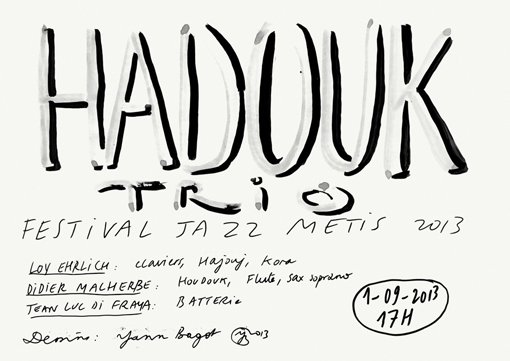 HADOUK
TRiO
FESTiVAL JAZZ METiS 2013
LOY EHRLICH : claviers, Hajouj, Kora
DIDIER MALHERBE : HOUDOUK, Flute, sax soprano
JEAN LUC DI FRAYA : BATTERie
1-09-2013
17H
Dessins : Yann Bagot 2013